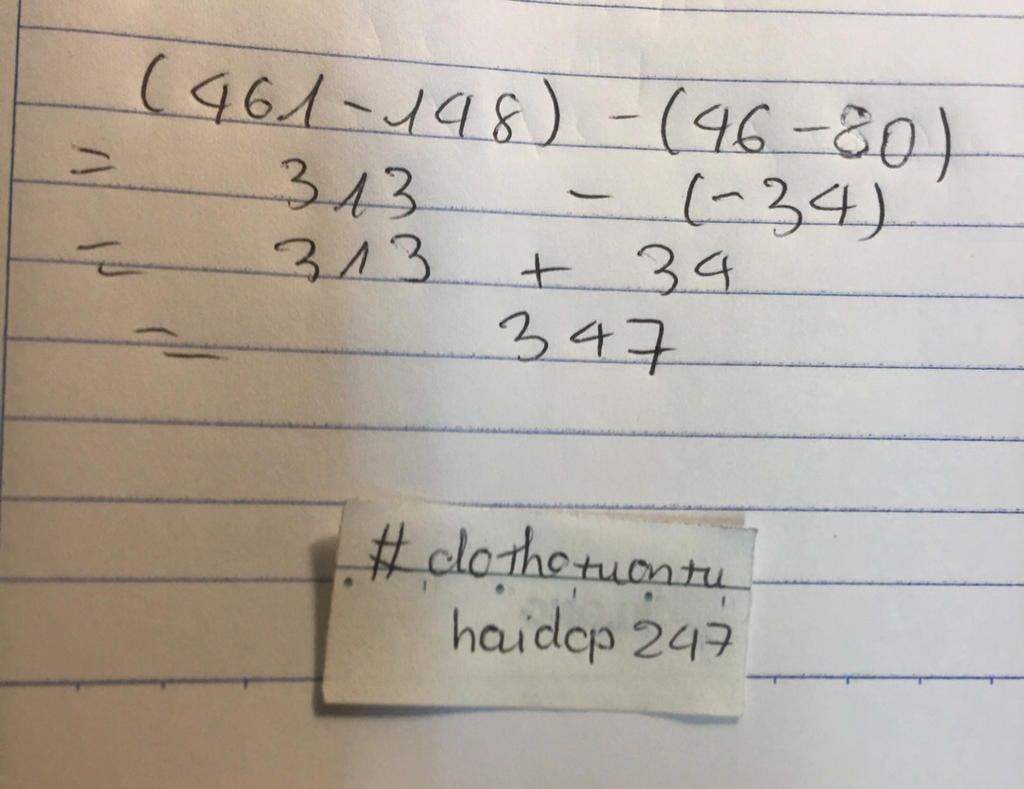 (461-148) - (46-80)
= 313 - (-34)
= 313 + 34
= 347
# clothotuontu
haidcp 247